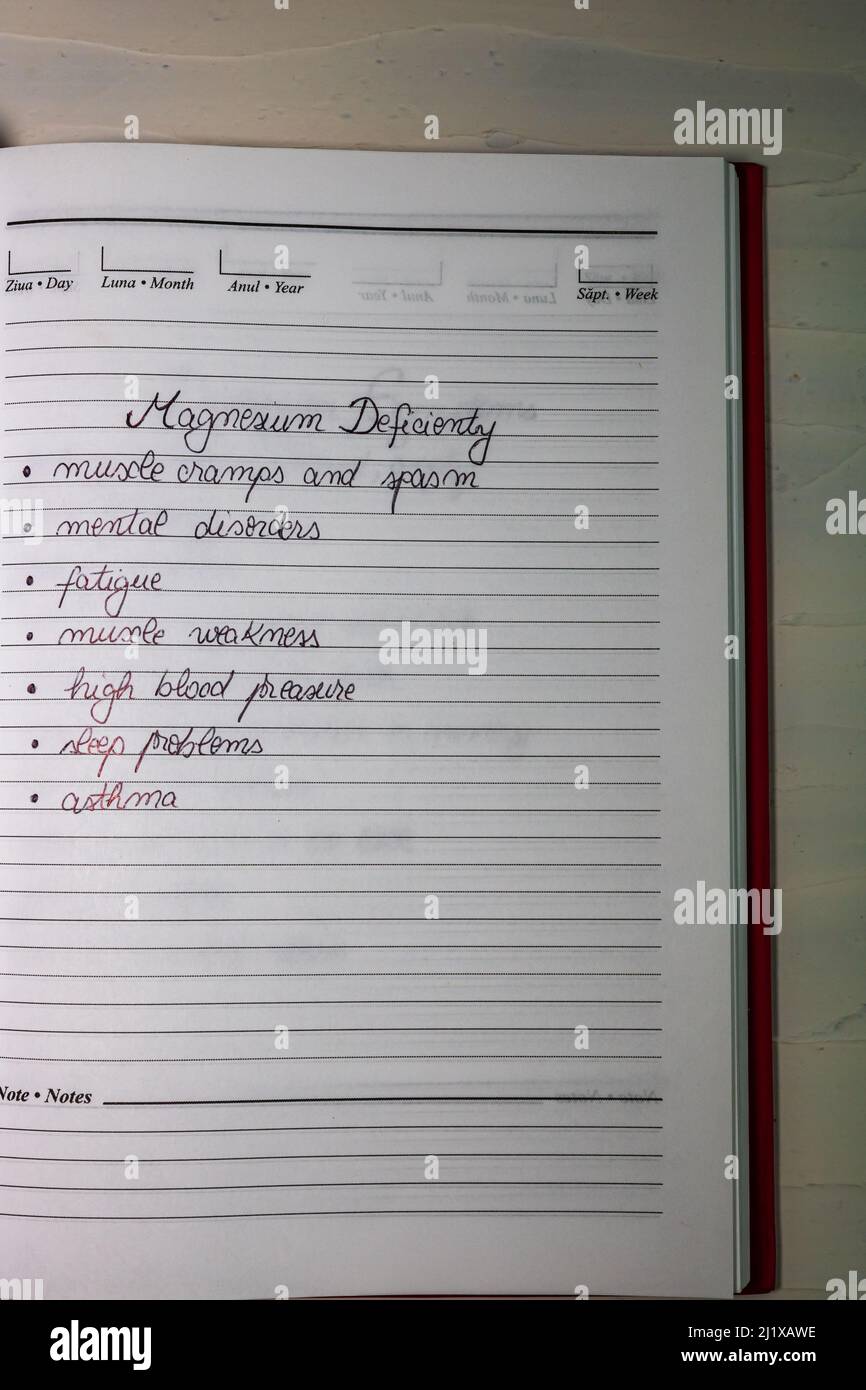 Ziua • Day Luna • Month Anul • Year Săpt. • Week
Magnesium Deficienty
• muscle cramps and spasm
• mental disorders
• fatigue
• muscle weakness
• high blood preasure
• sleep problems
• asthma
Note • Notes
alamy
Image ID: 2J1XAWE
www.alamy.com